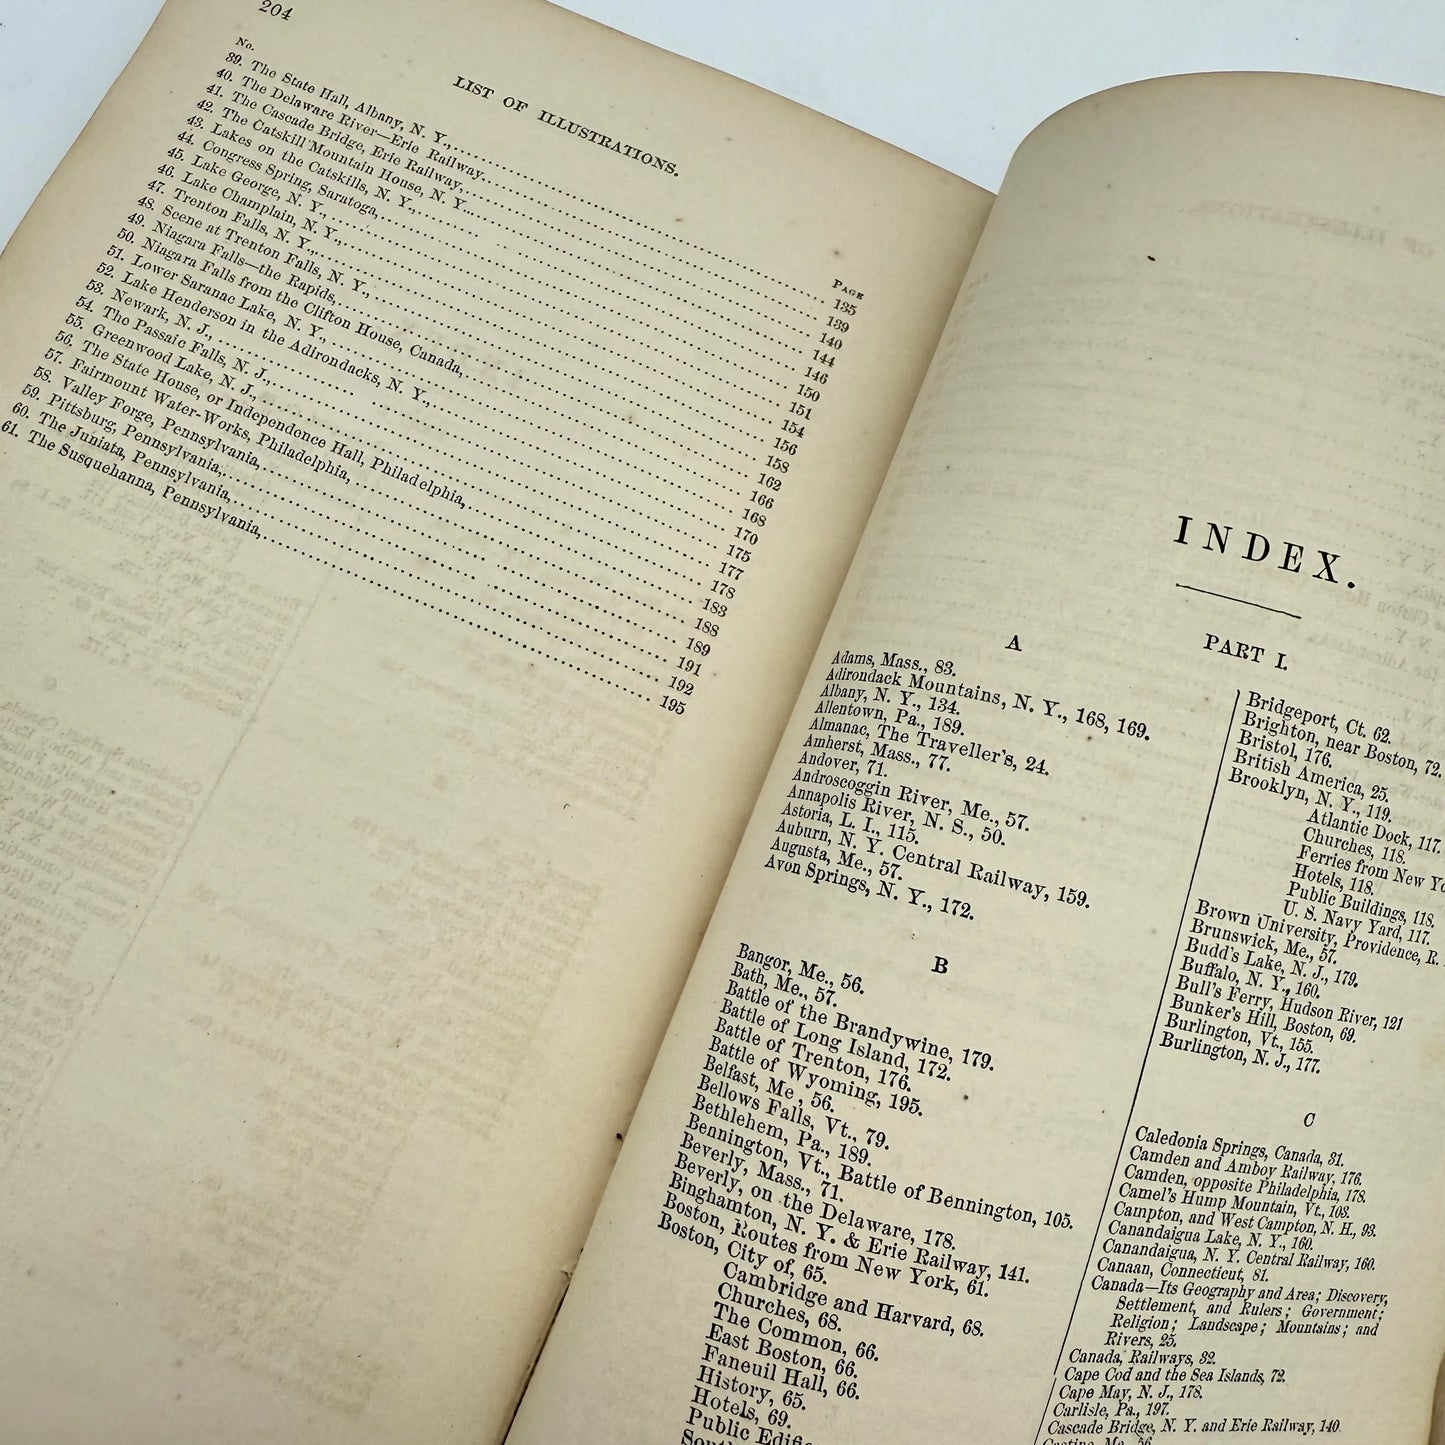 204
LIST OF ILLUSTRATIONS.
No. PAGE
39. The State Hall, Albany, N. Y., 135
40. The Delaware River—Erie Railway, 139
41. The Cascade Bridge, Erie Railway, 140
42. The Catskill Mountain House, N. Y. 144
43. Lakes on the Catskills, N. Y., 146
44. Congress Spring, Saratoga, 150
45. Lake George, N. Y., 151
46. Lake Champlain, N. Y., 154
47. Trenton Falls, N. Y., 156
48. Scene at Trenton Falls, N. Y., 158
49. Niagara Falls—the Rapids, 162
50. Niagara Falls from the Clifton House, Canada, 166
51. Lower Saranac Lake, N. Y., 168
52. Lake Henderson in the Adirondacks, N. Y., 170
53. Newark, N. J., 175
54. The Passaic Falls, N. J., 177
55. Greenwood Lake, N. J., 178
56. The State House, or Independence Hall, Philadelphia, 183
57. Fairmount Water-Works, Philadelphia, 188
58. Valley Forge, Pennsylvania, 189
59. Pittsburg, Pennsylvania, 191
60. The Juniata, Pennsylvania, 192
61. The Susquehanna, Pennsylvania, 195
INDEX.
PART I.
A
Adams, Mass., 83.
Adirondack Mountains, N. Y., 168, 169.
Albany, N. Y., 134.
Allentown, Pa., 189.
Almanac, The Traveller's, 24.
Amherst, Mass., 77.
Andover, 71.
Androscoggin River, Me., 57.
Annapolis River, N. S., 50.
Astoria, L. I., 115.
Auburn, N. Y. Central Railway, 159.
Augusta, Me., 57.
Avon Springs, N. Y., 172.
B
Bangor, Me., 56.
Bath, Me., 57.
Battle of the Brandywine, 179.
Battle of Long Island, 172.
Battle of Trenton, 176.
Battle of Wyoming, 195.
Belfast, Me , 56.
Bellows Falls, Vt., 79.
Bethlehem, Pa., 189.
Bennington, Vt., Battle of Bennington, 105.
Beverly, Mass., 71.
Beverly, on the Delaware, 178.
Binghamton, N. Y. & Erie Railway, 141.
Boston, Routes from New York, 61.
Boston, City of, 65.
Cambridge and Harvard, 68.
Churches, 68.
The Common, 66.
East Boston, 66.
Faneuil Hall, 66.
History, 65.
Hotels, 69.
Public
Bridgeport, Ct. 62.
Brighton, near Boston, 72.
Bristol, 176.
British America, 25.
Brooklyn, N. Y., 119.
Atlantic Dock, 117.
Churches, 118.
Ferries from New
Hotels, 118.
Public Buildings, 118.
U. S. Navy Yard, 117.
Brown University, Providence, R.
Brunswick, Me., 57.
Budd's Lake, N. J., 179.
Buffalo, N. Y., 160.
Bull's Ferry, Hudson River, 121
Bunker's Hill, Boston, 69.
Burlington, Vt., 155.
Burlington, N. J., 177.
C
Caledonia Springs, Canada, 31.
Camden and Amboy Railway, 176.
Camden, opposite Philadelphia, 178.
Camel's Hump Mountain, Vt., 103.
Campton, and West Campton, N. H., 93.
Canandaigua Lake, N. Y., 160.
Canandaigua, N. Y. Central Railway, 160.
Canaan, Connecticut, 81.
Canada—Its Geography and Area; Discovery,
Settlement, and Rulers; Government;
Religion; Landscape; Mountains; and
Rivers, 25.
Canada, Railways, 32.
Cape Cod and the Sea Islands, 72.
Cape May, N. J., 178.
Carlisle, Pa., 197.
Cascade Bridge, N. Y. and Erie Railway, 140